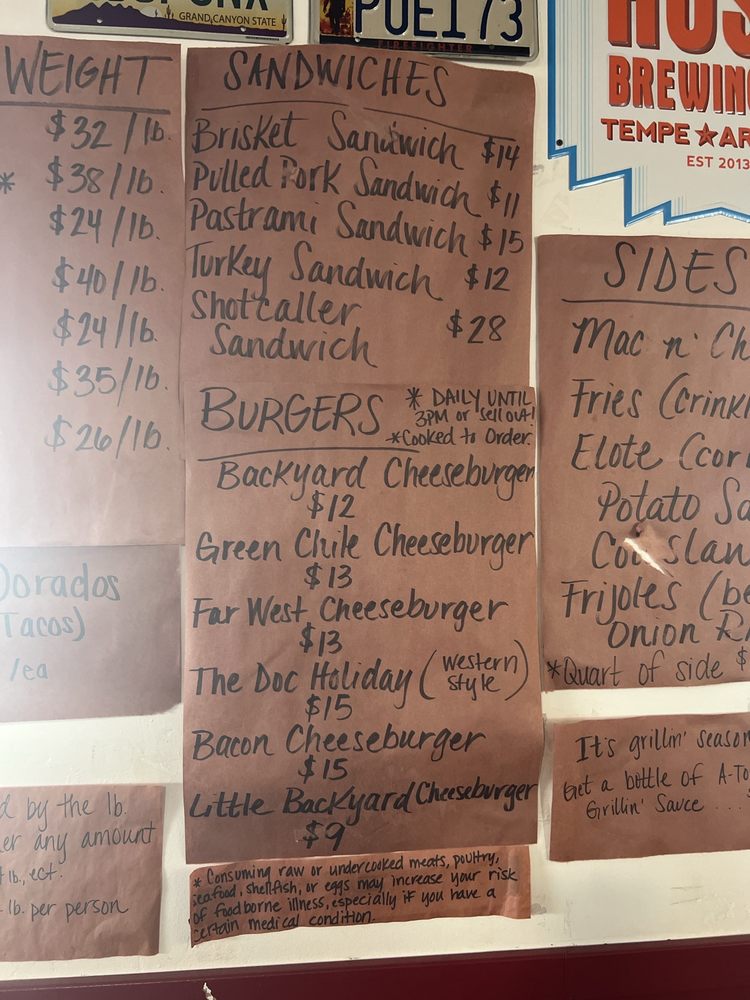 GRAND CANYON STATE
PUE173
FIREFIGHTER
BREWIN
TEMPE ★ AR
EST 2013
WEIGHT
$32/lb.
* $38/lb.
$24/lb.
$40/lb.
$24/lb.
$35/lb.
$26/lb.
Dorados
Tacos)
/ea
d by the lb.
er any amount
lb., ect.
lb. per person
SANDWICHES
Brisket Sandwich $14
Pulled Pork Sandwich $11
Pastrami Sandwich $15
Turkey Sandwich $12
Shotcaller
Sandwich $28
BURGERS
* DAILY UNTIL
3PM or sell out!
*Cooked to Order.
Backyard Cheeseburger
$12
Green Chile Cheeseburger
$13
Far West Cheeseburger
$13
The Doc Holiday (western
style)
$15
Bacon Cheeseburger
$15
Little Backyard Cheeseburger
$9
* Consuming raw or undercooked meats, poultry,
seafood, shellfish, or eggs may increase your risk
of foodborne illness, especially if you have a
certain medical condition.
SIDES
Mac n' Ch
Fries (crinkl
Elote (cor
Potato Sa
Coleslaw
Frijoles (be
Onion Ri
*Quart of side $
It's grillin' season
Get a bottle of A-To
Grillin' Sauce ....